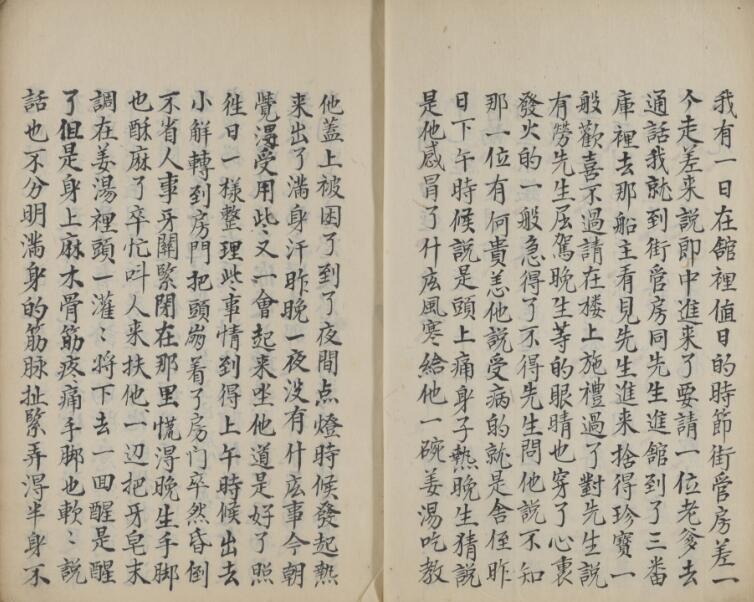 我有一日在舘裡值日的時節街官房差一
个走差来説即中進来了要請一位老爹去
通話我就到街官房同先生進館到了三番
庫裡去那船主看見先生進来捨得珍寶一
般歡喜不過請在楼上施禮過了對先生說
有勞先生屈駕晚生等的眼睛也穿了心裏
發火的一般急得了不得先生問他說不知
那一位有何貴恙他說受病的就是舍侄昨
日下午時候説是頭上痛身子熱晚生猜説
是他感冒了什庅風寒給他一碗姜湯吃教
他蓋上被困了到了夜間点燈時候發起熱
来出了滿身汗昨晚一夜没有什庅事今朝
覺得受用些又一會起来坐他道是好了照
徃日一樣整理些事情到得上午時候出去
小解轉到房門把頭着了房门卒然昏倒
不省人事牙關緊閉在那里慌得晚生手脚
也酥麻了卒忙叫人来扶他一辺把牙皂末
調在姜湯裡頭一灌〻將下去一回醒是醒
了但是身上麻木骨筋疼痛手脚也軟〻説
話也不分明滿身的筋脉扯緊弄得半身不